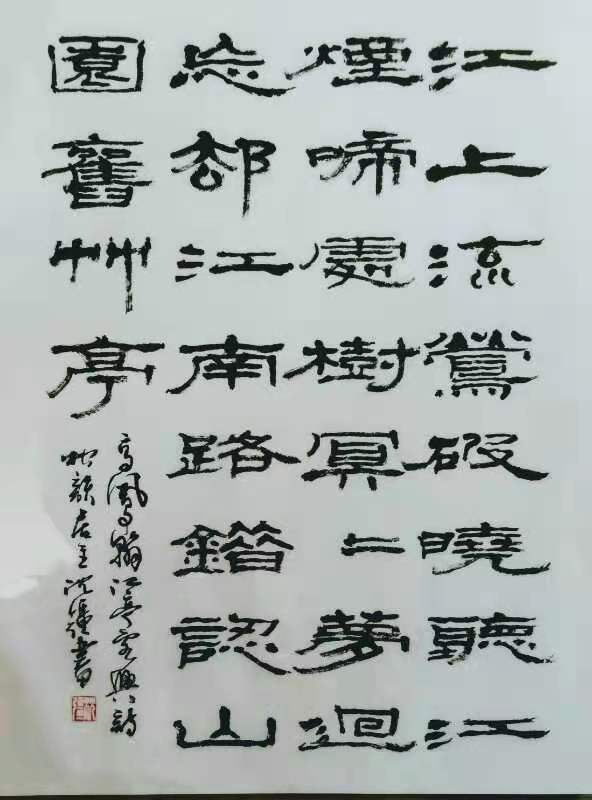 江上流鶯破曉聽江
煙啼處樹冥〻夢迴
忘却江南路錯認山
園舊艸亭
高鳳翰江亭寓興詩
韻居主沈書